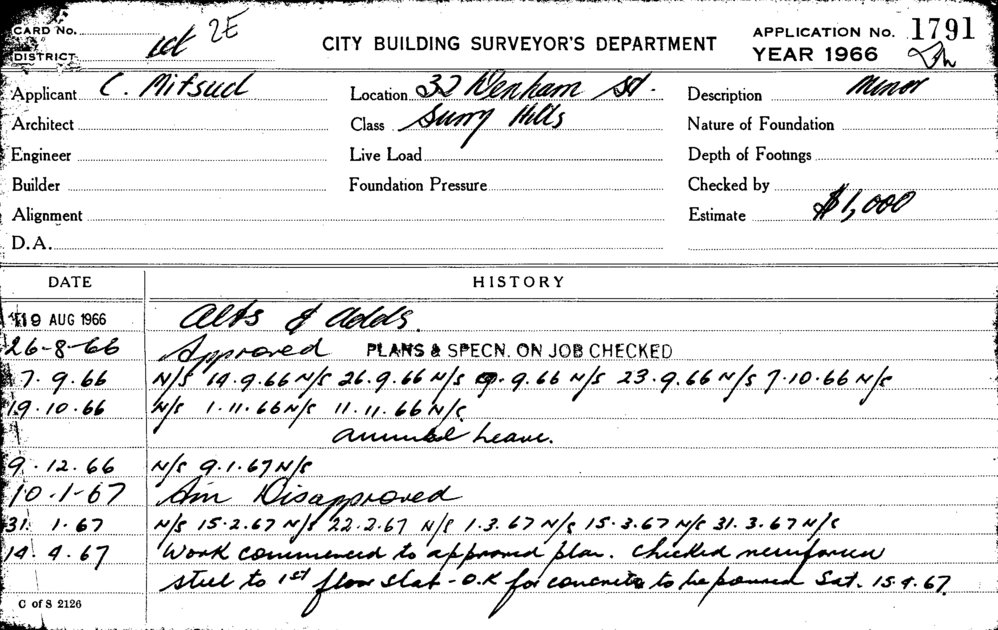 CARD No.
DISTRICT 2E
CITY BUILDING SURVEYOR'S DEPARTMENT
APPLICATION No. 1791
YEAR 1966
Applicant C. Mifsud
Location 32 Denham St.
Description Minor
Architect
Class Surry Hills
Nature of Foundation
Engineer
Live Load
Depth of Footings
Builder
Foundation Pressure
Checked by
Alignment
Estimate $1,000
D.A.
DATE HISTORY
19 AUG 1966 Alts & Adds.
26-8-66 Approved PLANS & SPECN. ON JOB CHECKED
7.9.66 N/S 14.9.66 N/S 26.9.66 N/S 9.66 N/S 23.9.66 N/S 7.10.66 N/S
19.10.66 N/S 1.11.66 N/S 11.11.66 N/S
annual Leave.
9.12.66 N/S 9.1.67 N/S
10-1-67 Disapproved
31. 1.67 N/S 15.2.67 N/S 22.2.67 N/S 1.3.67 N/S 15.3.67 N/S 31.3.67 N/S
14.4.67 Work commenced to approved plan. Checked
steel to 1st floor slab - O.K for concrete to be poured Sat. 15.4.67.
C of S 2126